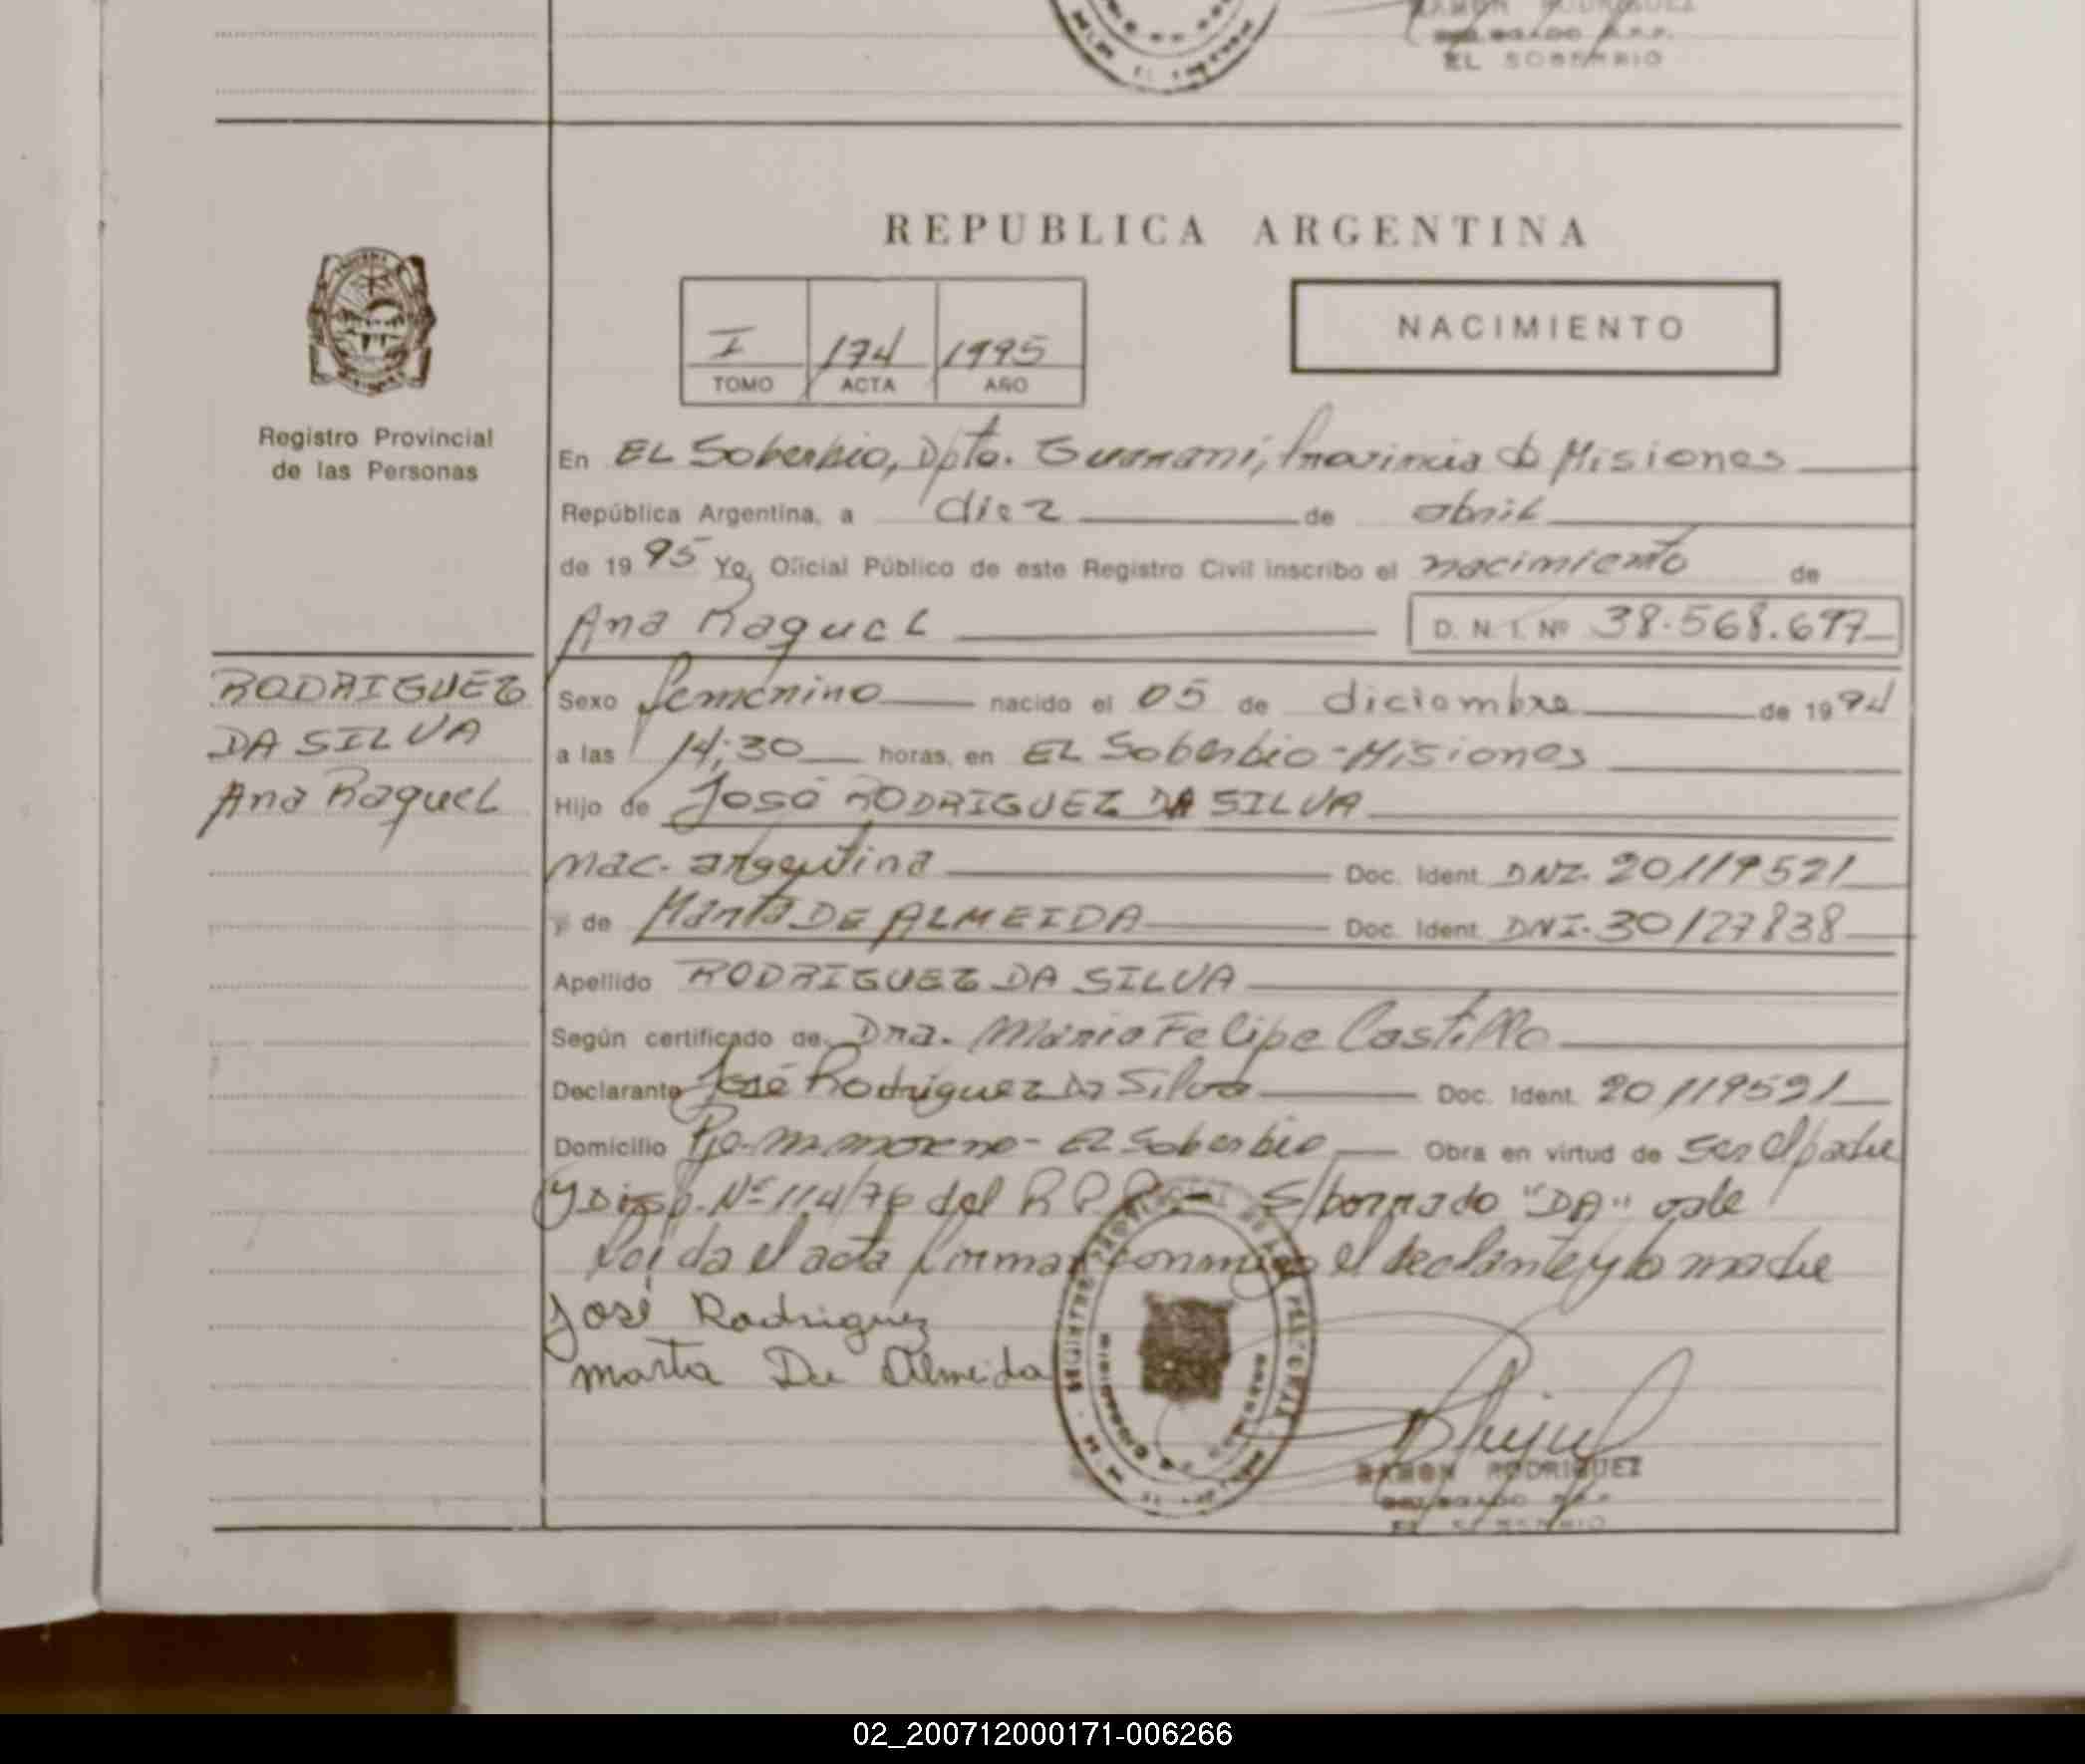 RAMON RODRIGUEZ
EL SOBERBIO
REPUBLICA ARGENTINA
I 174 1995
TOMO ACTA AÑO
NACIMIENTO
Registro Provincial
de las Personas
En EL Soberbio, Dpto. Guarani, Provincia de Misiones
República Argentina, a diez de abril
de 1995 Yo, Oficial Público de este Registro Civil inscribo el nacimiento de
Ana Raquel D. N. I. Nº 38.568.697
RODRIGUEZ
DA SILVA
Ana Raquel
Sexo femenino nacido el 05 de diciembre de 1994
a las 14;30 horas, en EL Soberbio-Misiones
Hijo de José RODRIGUEZ DA SILVA
nac. argentina Doc. Ident. DNI. 20119521
y de Marta DE ALMEIDA Doc. Ident. DNI. 30127838
Apellido RODRIGUEZ DA SILVA
Según certificado de Dra. Maria Felipe Castillo
Declarante José Rodriguez Da Silva Doc. Ident. 20119521
Domicilio Pje. M. moreno - El Soberbio Obra en virtud de ser el padre
y Disp. Nº 114/76 del R.P.P. - S/borrado "DA" vale
Leida el acta firman conmigo el declante y la madre
José Rodriguez
marta De Almeida
RAMON RODRIGUEZ
EL SOBERBIO
02_200712000171-006266